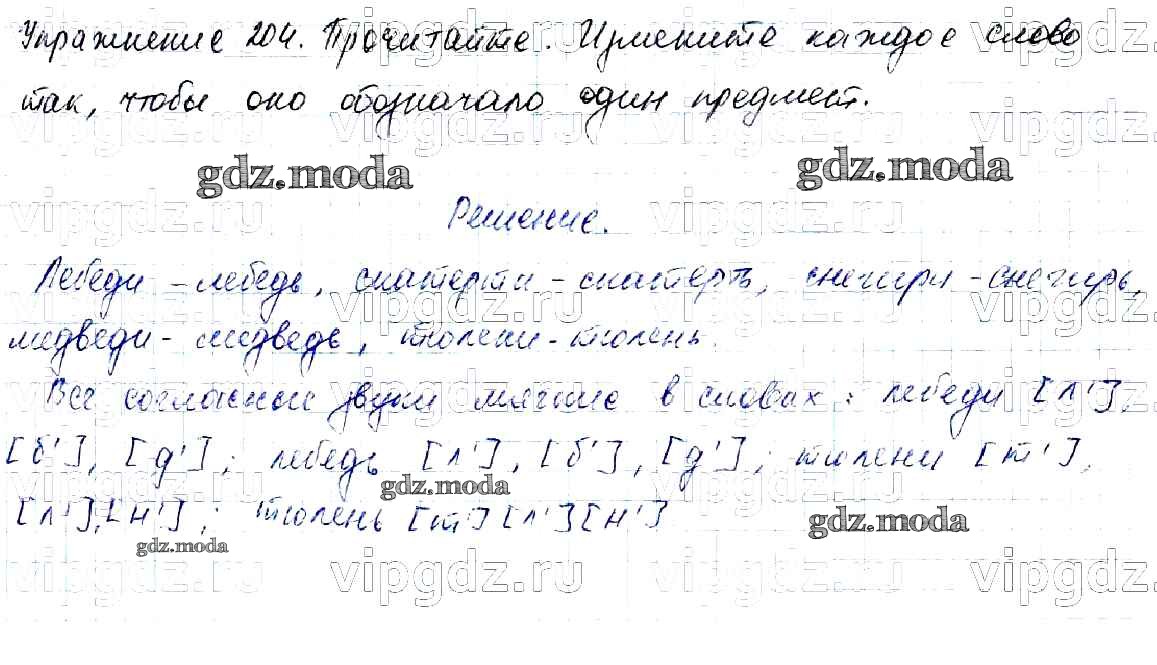 Упражнение 204. Прочитайте. Измените каждое слово
так, чтобы оно обозначало один предмет.
gdz.moda gdz.moda
Решение.
Лебеди - лебедь, скатерти - скатерть, снегири - снегирь,
медведи - медведь, тюлени - тюлень.
Все согласные звуки мягкие в словах: лебеди [л'],
[б'], [д']; лебедь [л'], [б'], [д']; тюлени [т'],
gdz.moda
[л'], [н']; тюлень [т'] [л'] [н']
gdz.moda
gdz.moda
vipgdz.ru vipgdz.ru